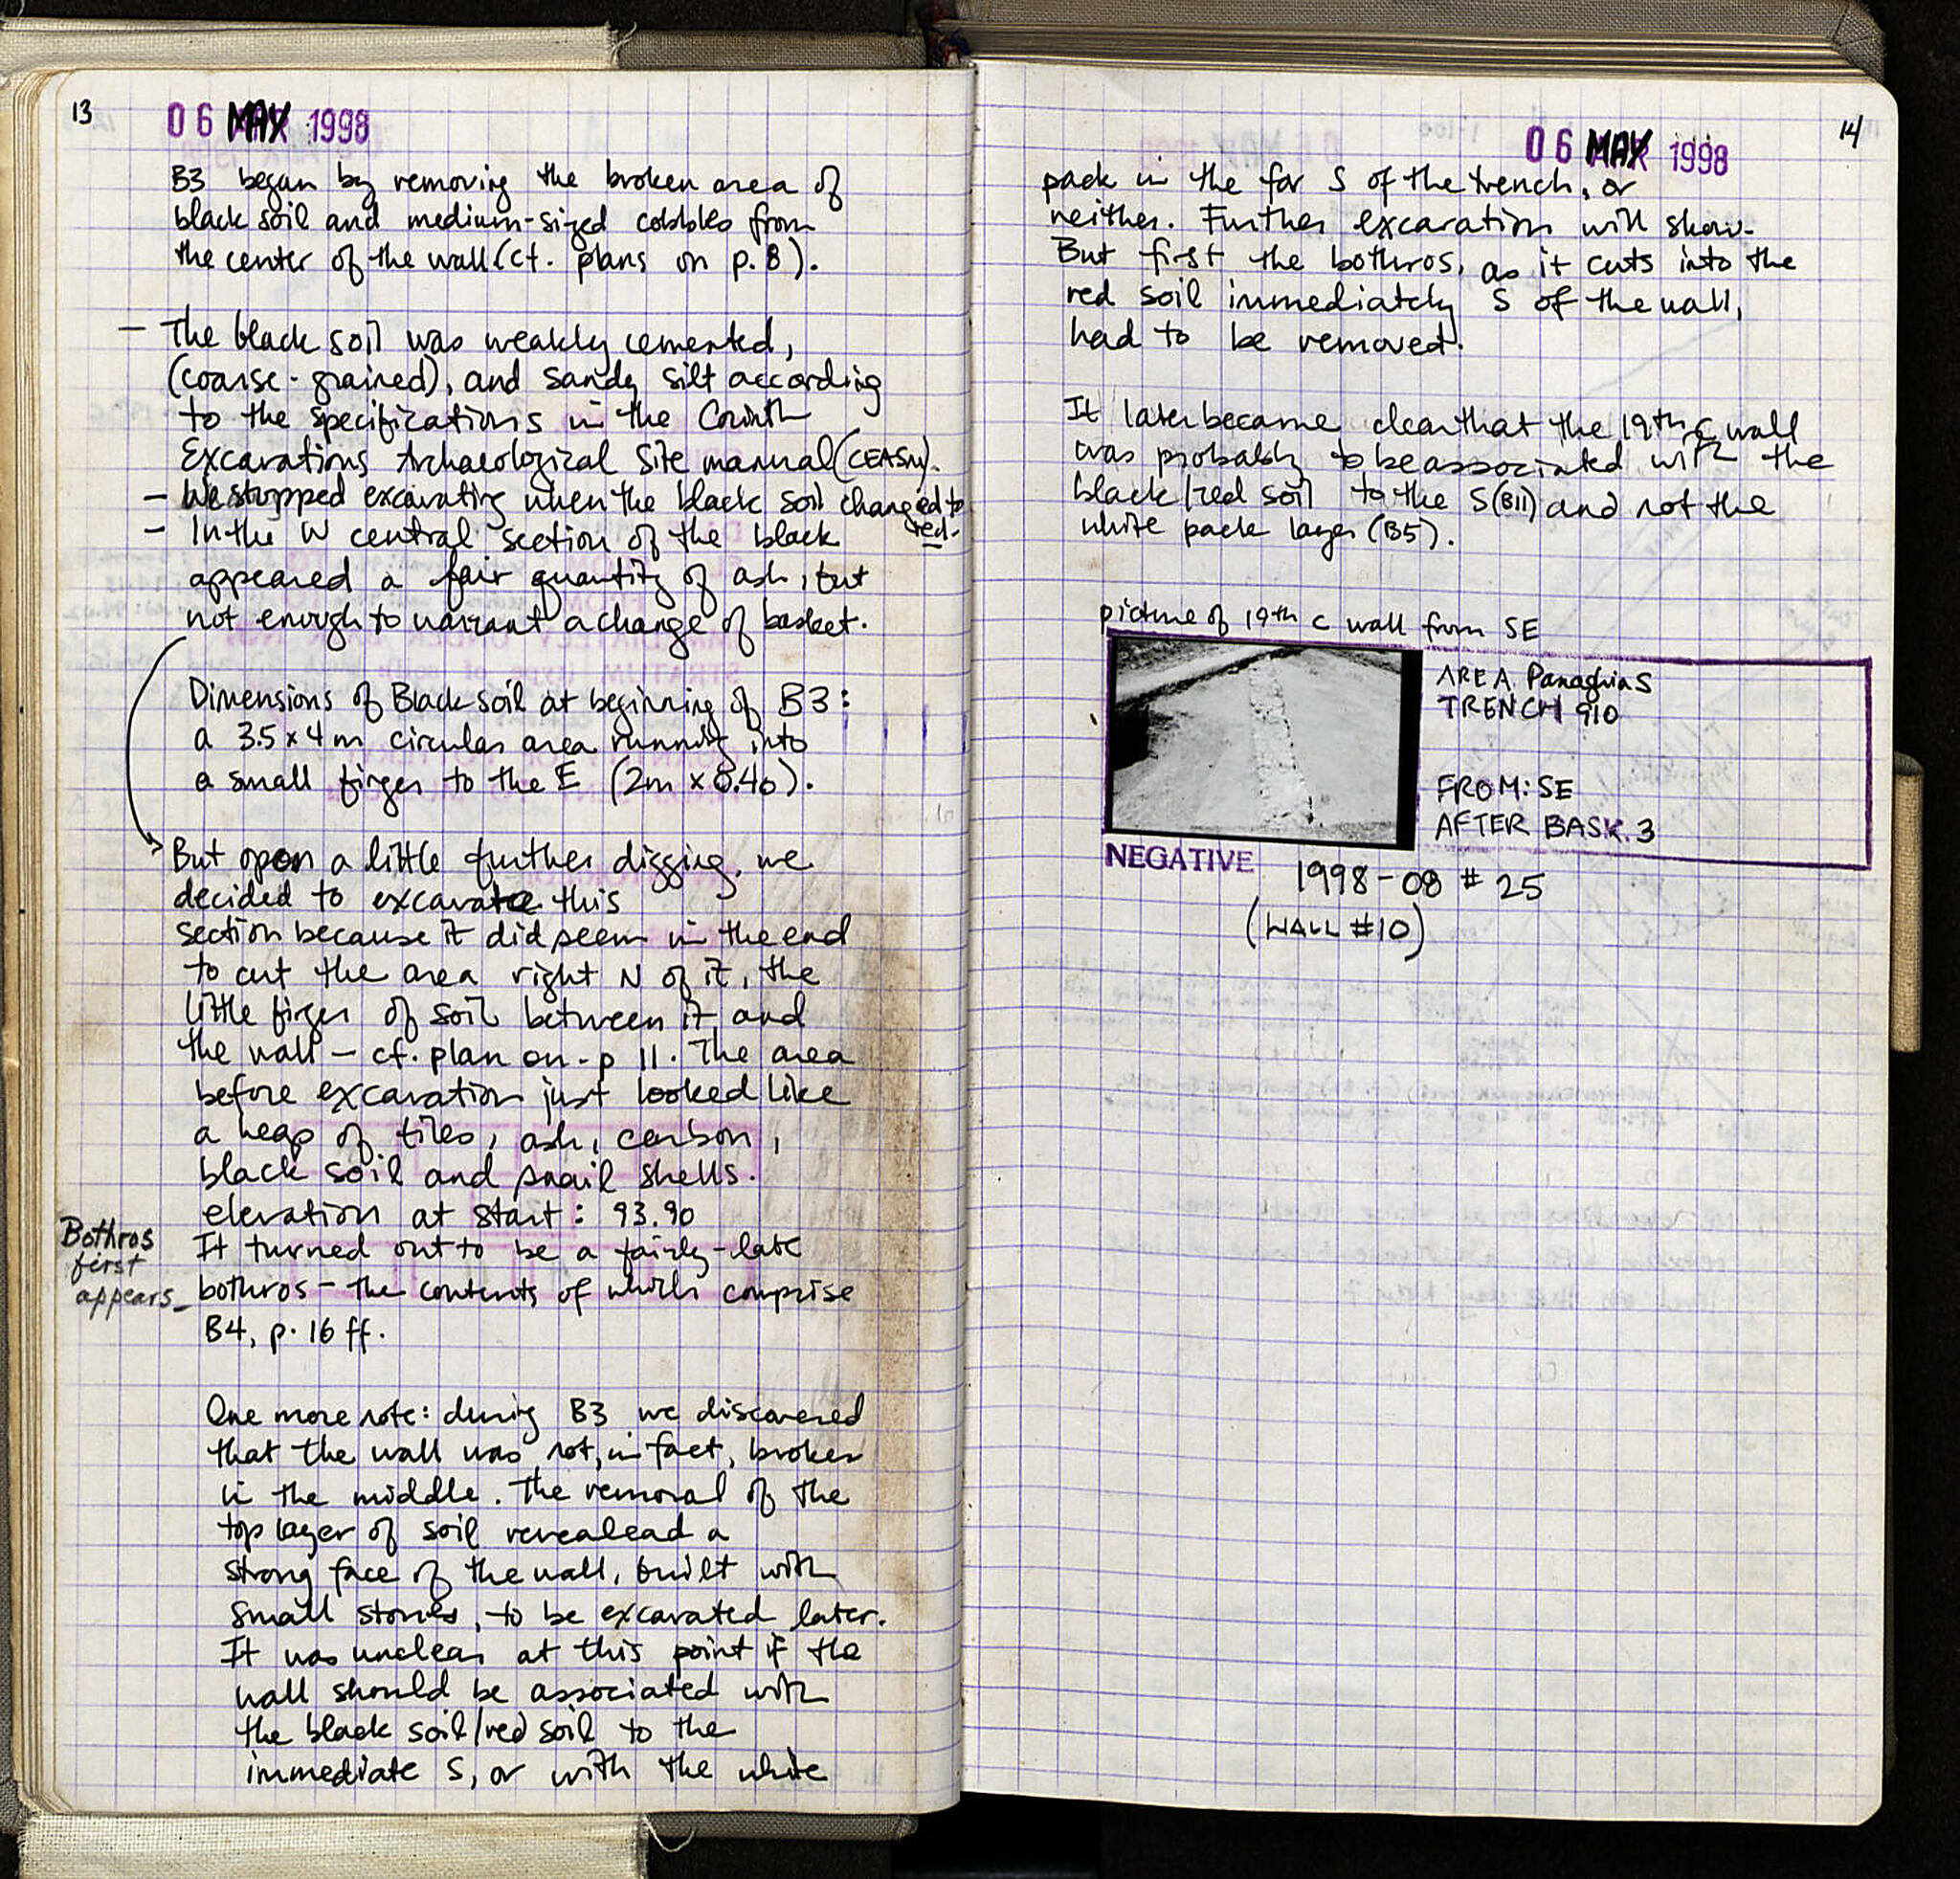 13
06 MAY 1998
B3 began by removing the broken area of
black soil and medium-sized cobbles from
the center of the wall (cf. plans on p. 8).
- The black soil was weakly cemented,
(coarse-grained), and sandy silt according
to the specifications in the Corinth
Excavations Archaeological Site manual (CEASM).
- We stopped excavating when the black soil changed to
red.
- In the W central section of the black
appeared a fair quantity of ash, but
not enough to warrant a change of basket.
Dimensions of Black soil at beginning of B3:
a 3.5 x 4 m circular area running into
a small finger to the E (2m x 0.40).
But upon a little further digging, we
decided to excavate this
section because it did seem in the end
to cut the area right N of it, the
little finger of soil between it and
the wall - cf. plan on p 11. The area
before excavation just looked like
a heap of tiles, ash, carbon,
black soil and snail shells.
elevation at start: 93.90
It turned out to be a fairly-late
bothros - the contents of which comprise
B4, p. 16 ff.
Bothros
first
appears
One more note: during B3 we discovered
that the wall was not, in fact, broken
in the middle. The removal of the
top layer of soil revealead a
strong face of the wall, built with
small stones, to be excavated later.
It was unclear at this point if the
wall should be associated with
the black soil/red soil to the
immediate S, or with the white
14
06 MAY 1998
pack in the far S of the trench, or
neither. Further excavation will show.
But first the bothros, as it cuts into the
red soil immediately S of the wall,
had to be removed.
It later became clear that the 19th c wall
was probably to be associated with the
black/red soil to the S (B11) and not the
white pack layer (B5).
picture of 19th c wall from SE
AREA Panaghia S
TRENCH 910
FROM: SE
AFTER BASK. 3
NEGATIVE
1998-08 # 25
(WALL #10)